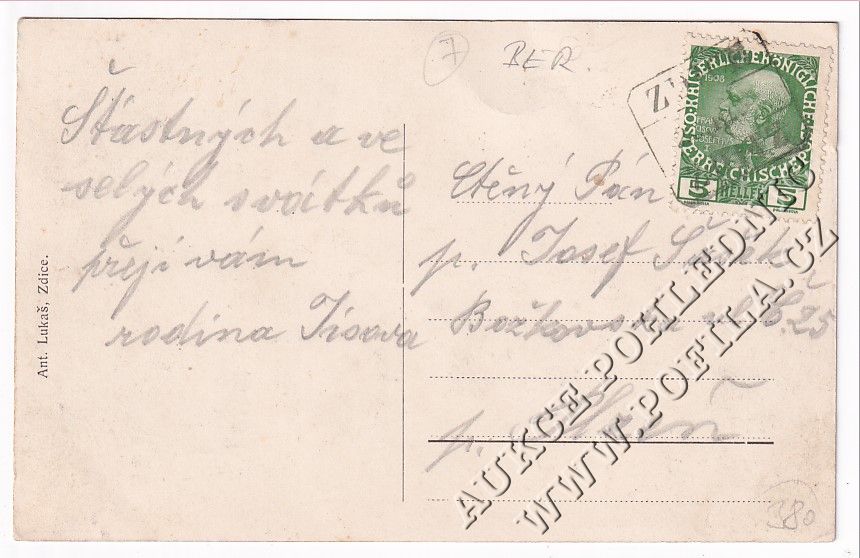 7
BER.
Šťastných a ve
selých svátků
přejí vám
rodina Tisova
Ant. Lukáš, Zdice.
ZD
KAISERLICHE KÖNIGLICHE
ÖSTERREICHISCHE POST
1908
5 HELLER 5
Ctěný Pán
p. Josef
Božkovská ul. č. 25
p.
380
AUKCE POHLEDNIC
WWW.POFILA.CZ